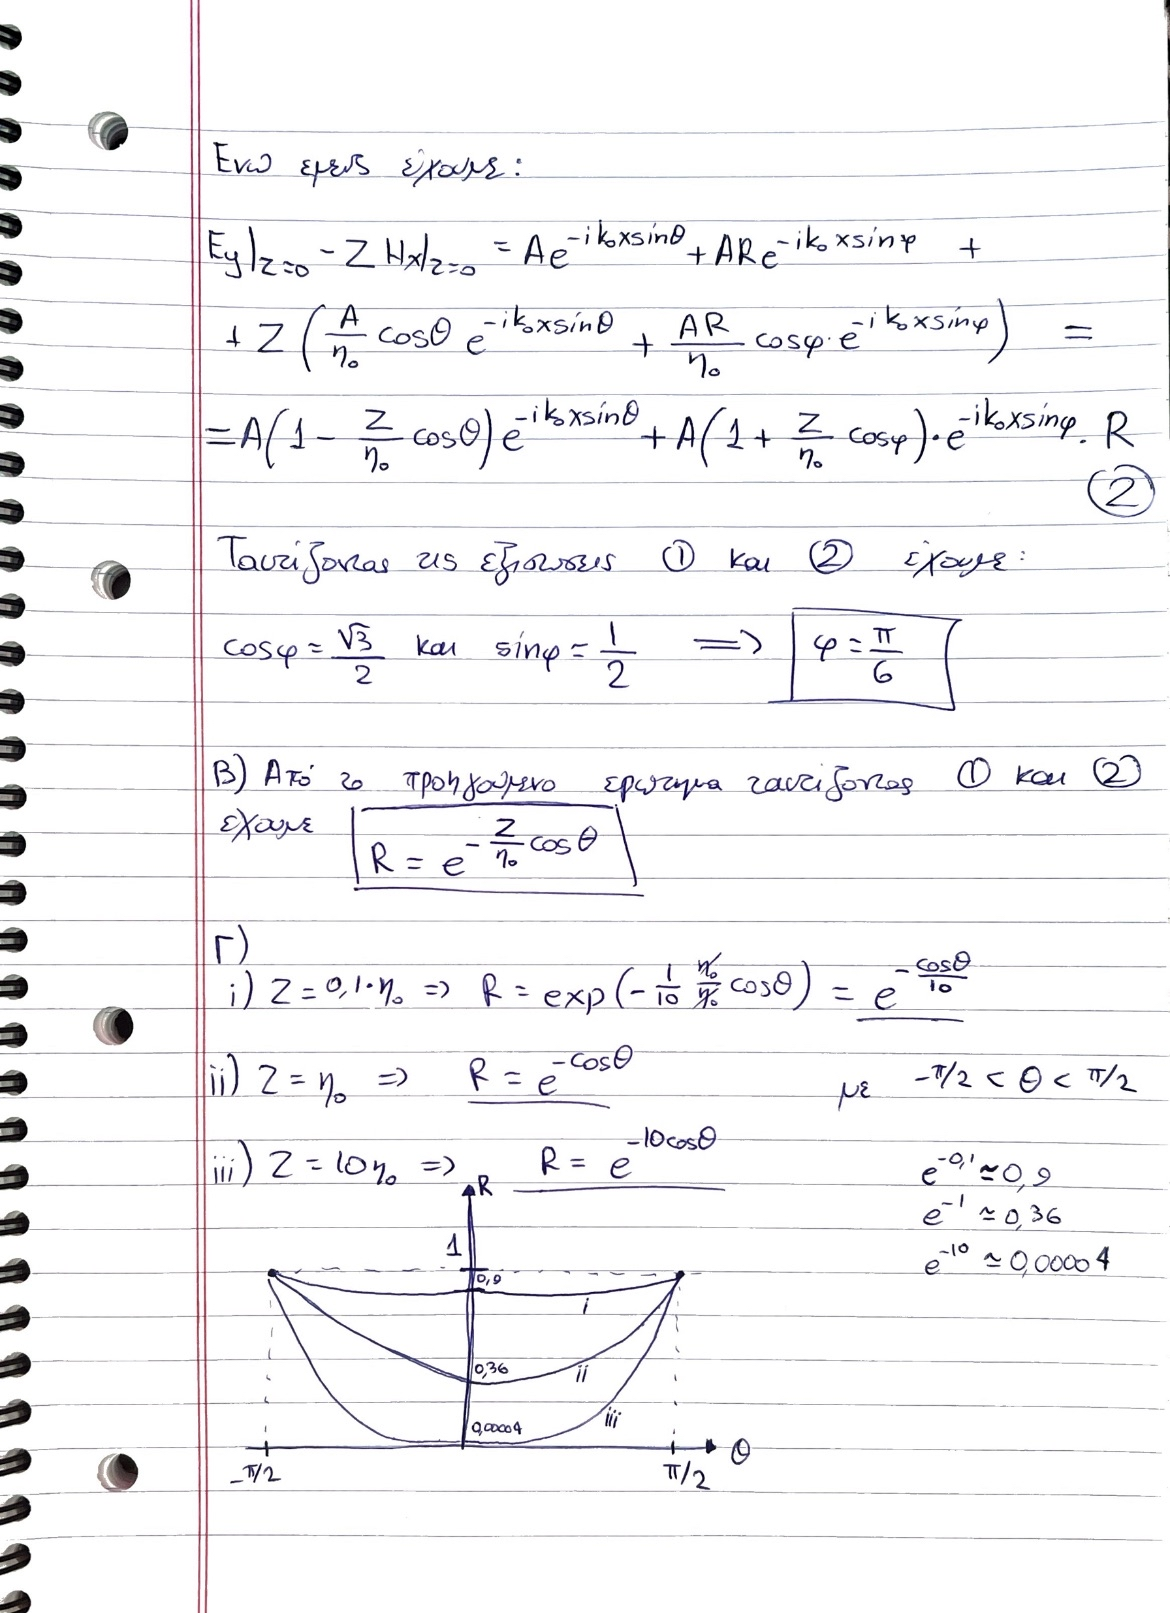 Ενω εμεις έχουμε:
Ey|z=0 - Z Hx|z=0 = Ae^{-ik₀xsinθ} + ARe^{-ik₀xsinφ} +
+ Z (A/η₀ cosθ e^{-ik₀xsinθ} + AR/η₀ cosφ·e^{-ik₀xsinφ}) =
= A(1 - Z/η₀ cosθ) e^{-ik₀xsinθ} + A(1 + Z/η₀ cosφ)·e^{-ik₀xsinφ}·R
②
Ταυτίζοντας τις εξισώσεις ① και ② έχουμε:
cosφ = √3/2 και sinφ = 1/2 ⟹ φ = π/6
Β) Από το προηγούμενο ερώτημα ταυτίζοντας ① και ②
έχουμε R = e^{-Z/η₀ cosθ}
Γ)
i) Z = 0,1·η₀ => R = exp(-1/10 η₀/η₀ cosθ) = e^{-cosθ/10}
ii) Z = η₀ => R = e^{-cosθ} με -π/2 < θ < π/2
iii) Z = 10η₀ => R = e^{-10cosθ}
e^{-0,1} ≃ 0,9
e^{-1} ≃ 0,36
e^{-10} ≃ 0,00004
R
1
0,9
i
0,36
ii
0,00004
iii
-π/2
π/2
θ